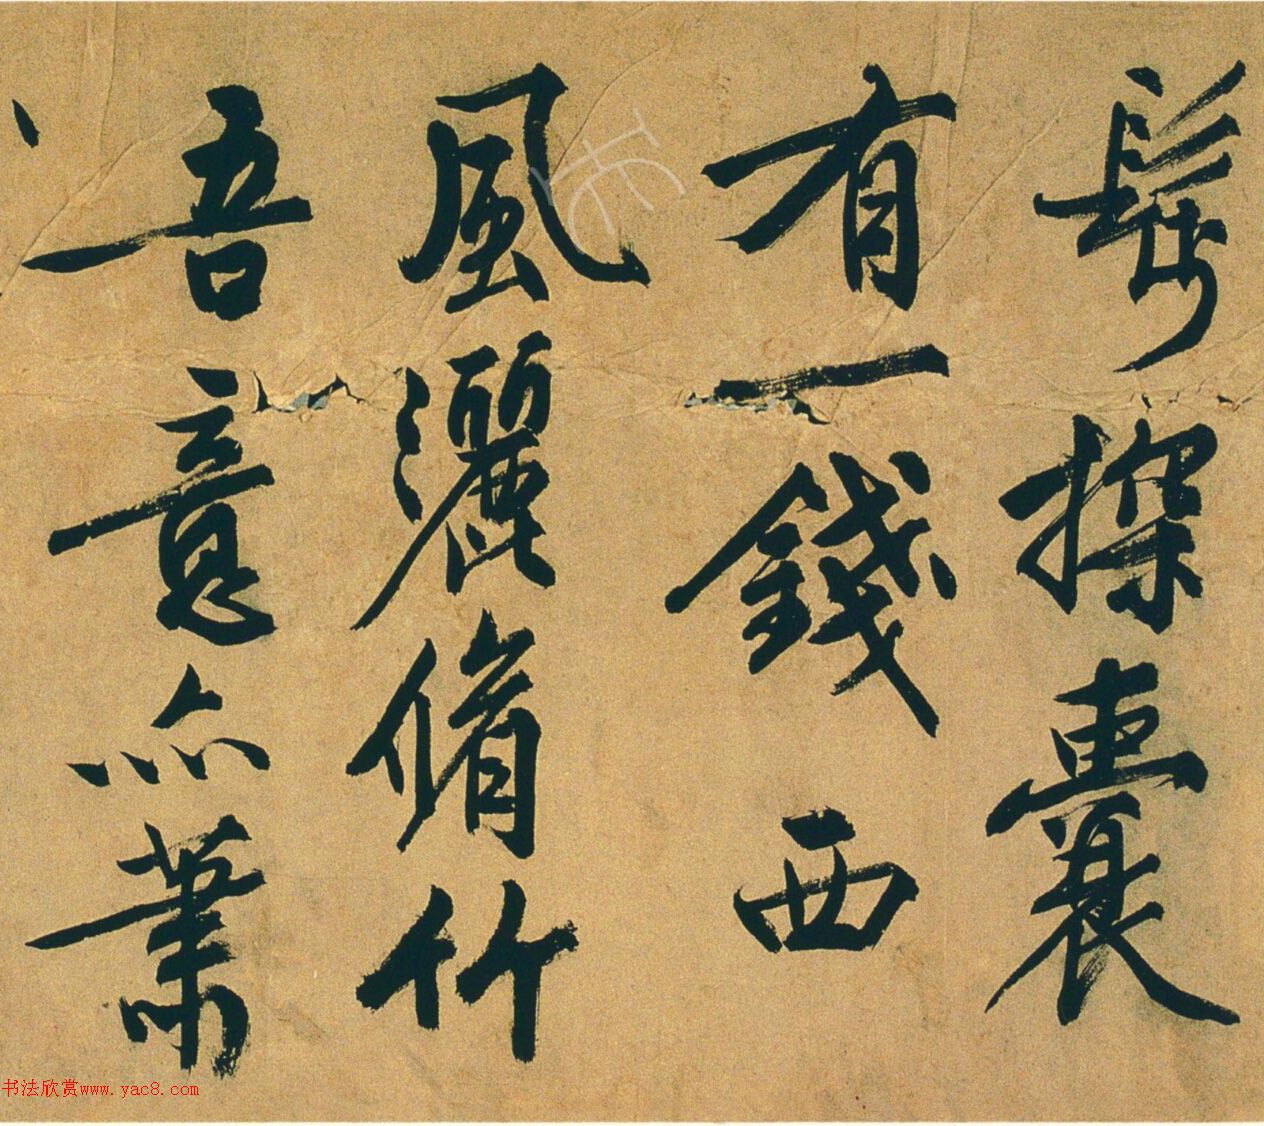 探囊
有一錢西
風灑脩竹
吾意亦蕭
书法欣赏www.yac8.com